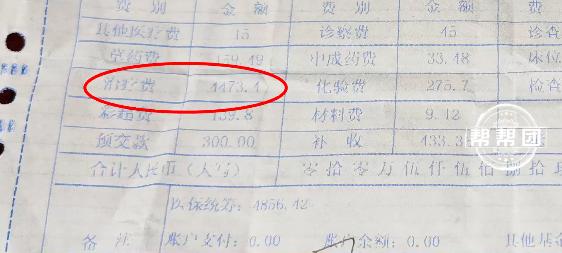 费 别 金 额 费 别 金 额 费
其他医疗费 15 诊察费 15 诊查
159.49 中成药费 33.48 床位
4473.1 化验费 275.7 检查
彩超费 139.8 材料费 9.12
预交款 300.00 补 收 433.3
帮帮团
合计人民币(大写) 零拾零万伍仟伍佰捌拾
医保统筹: 4856.42
备 注 账户支付: 0.00 账户余额: 0.00 其他基金